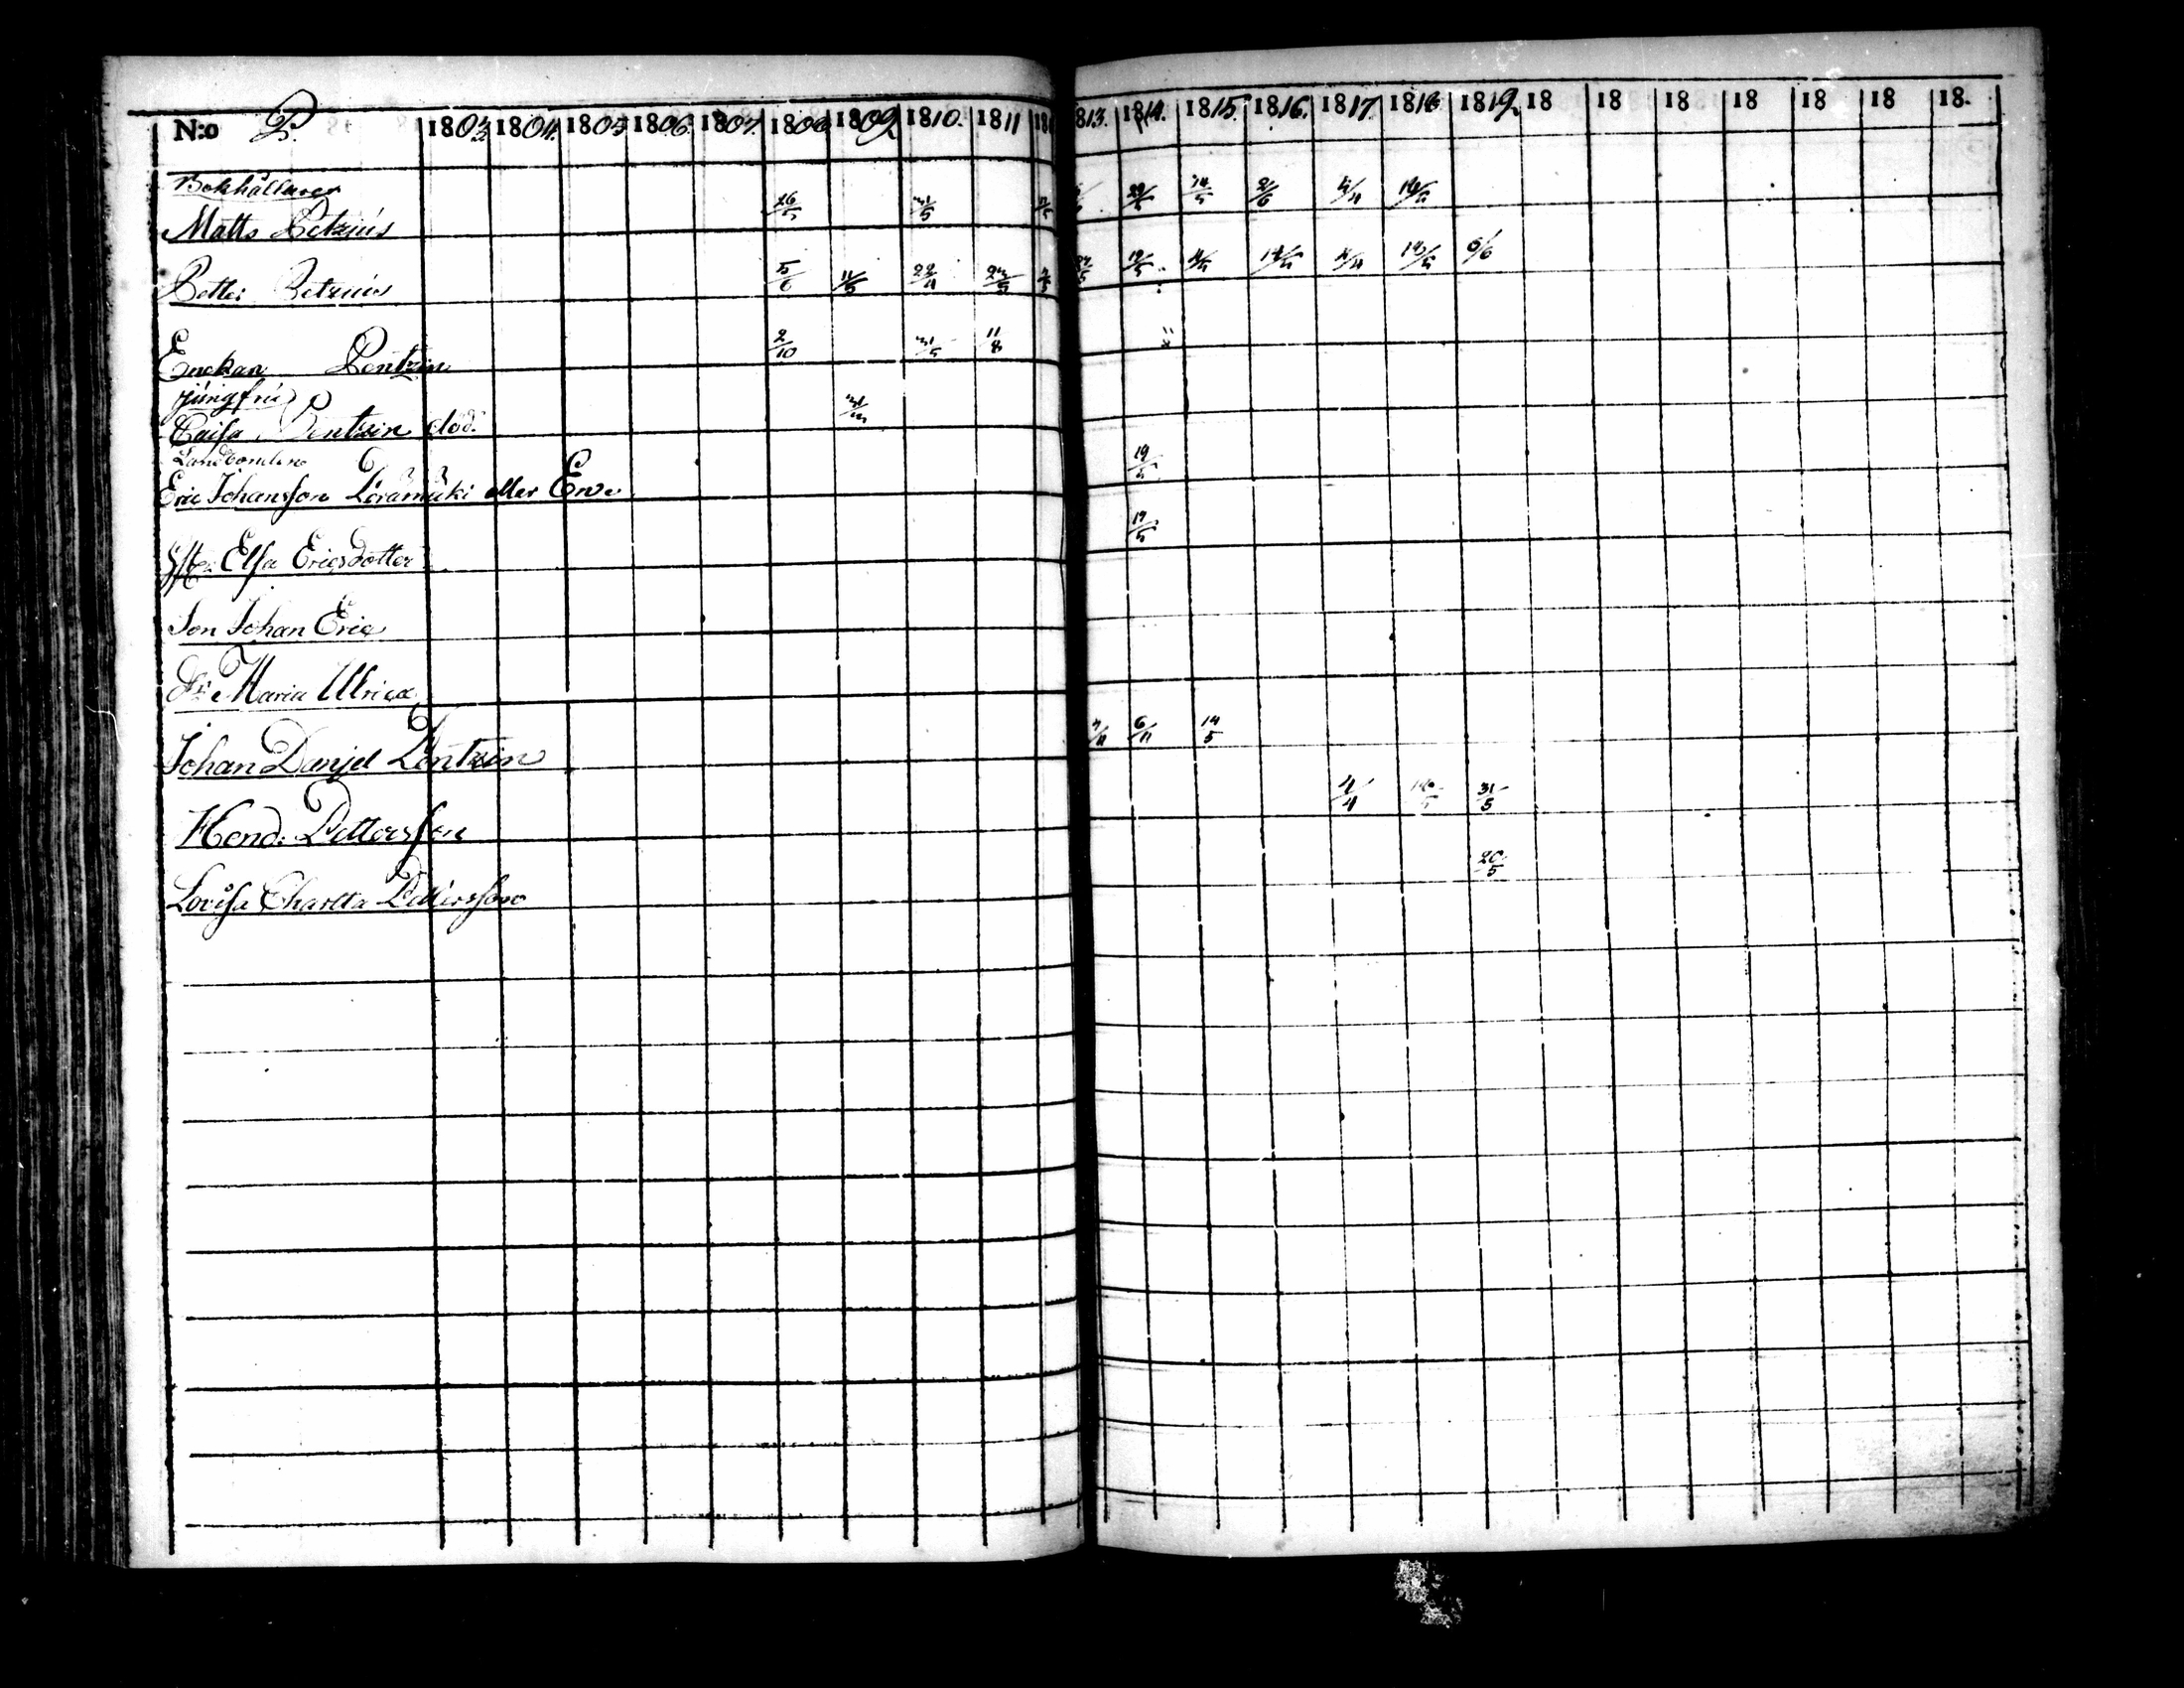 N:o P. 1803 1804. 1805 1806. 1807. 1808 1809 1810. 1811 18 813. 1814. 1815. 1816. 1817. 1818 1819 18 18 18 18 18 18 18.
Bokhållaren
Matts Petzius 26/5 31/5 29/5 14/5 2/6 4/4 16/5
Petter Petzius 5/6 11/5 22/4 23/5 19/5 14/5 4/4 16/5 6/6
Enckan Pentzin 2/10 31/5 11/8
jungfru
Caisa Pentzin död.
Landbonden
Eric Johansson eller Erve 19/5
Hst: Elsa Ericsdotter 19/5
Son Johan Eric
Dr: Maria Ulrica
Johan Danjel Pentzin 6/11 14/5
Hend: Pettersson 4/4 16/5 31/5
Lovisa Charlta Pettersson 20/5